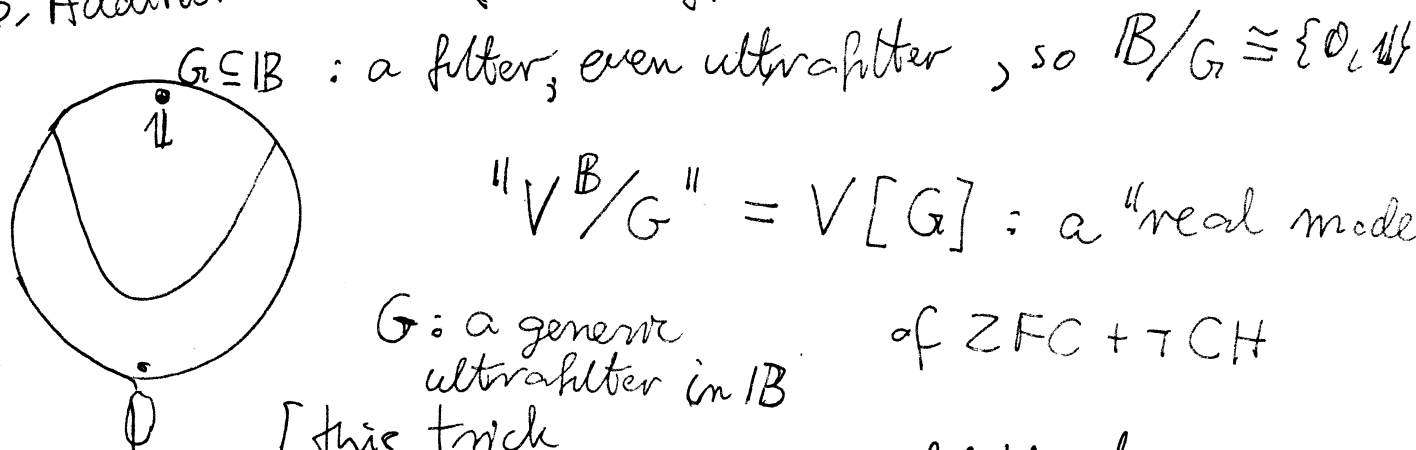 G ⊆ 𝔹 : a filter, even ultrafilter, so 𝔹/G ≅ {𝟘, 𝟙}
𝟙
"V^𝔹/G" = V[G] : a "real mode
G: a generic
of ZFC + ¬CH
ultrafilter in 𝔹
𝟘
[this trick